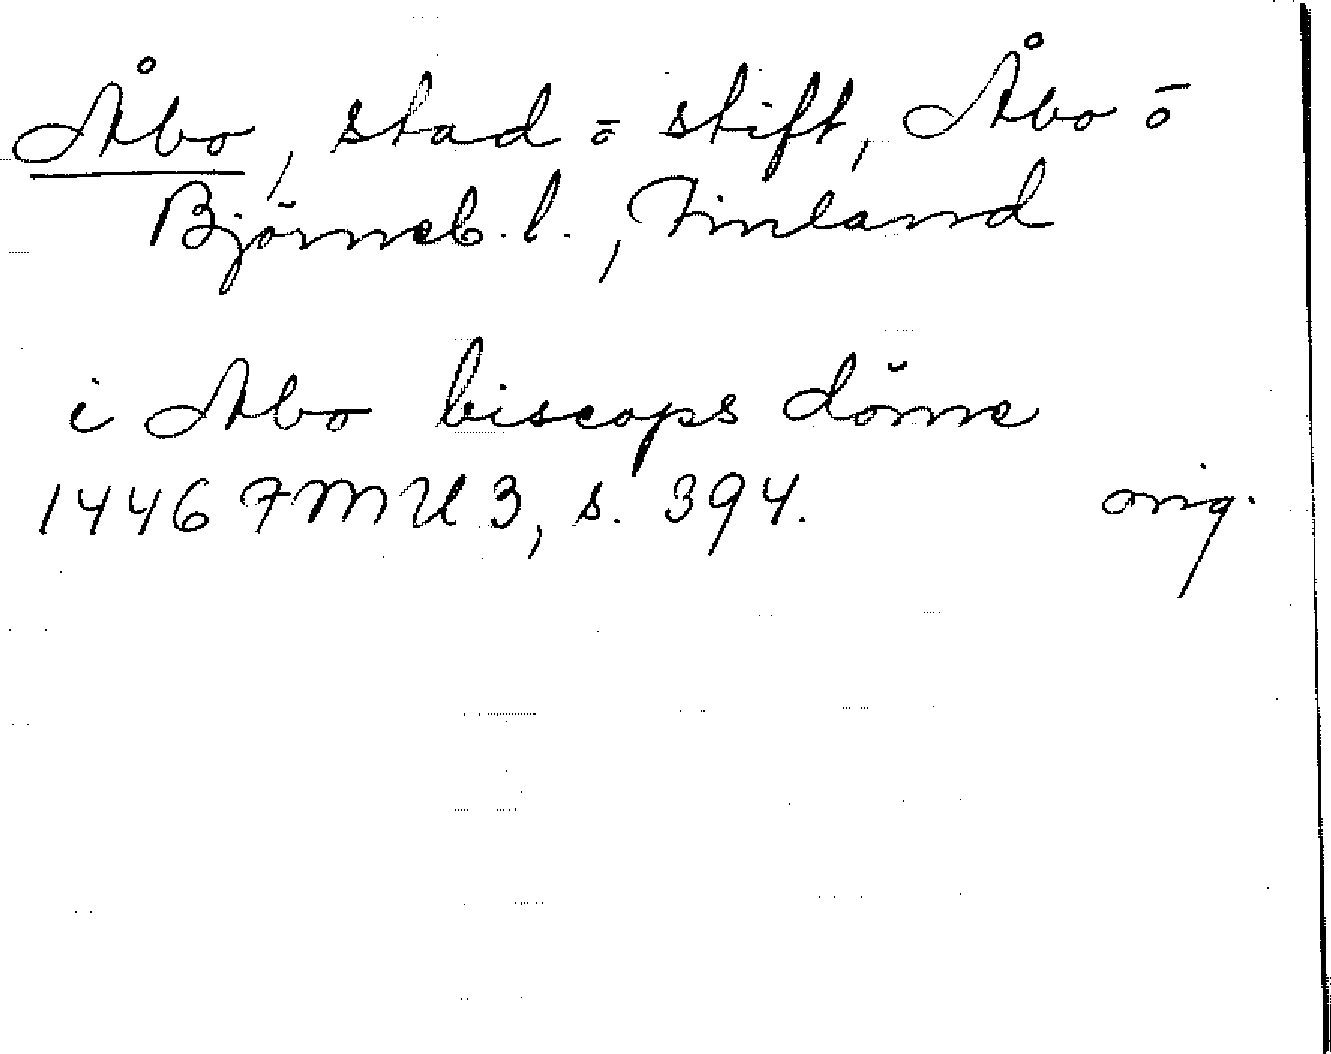 Åbo, stad o stift, Åbo o
Björneb. l., Finland
i Abo biscops döme
1446 FMU 3, s. 394. orig.